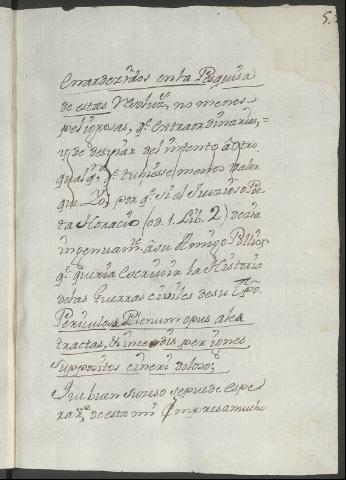 5.
enardezidos en la Pesquisa
de estas Revoluz.s, no menos
peligrosas, q.e extraordinarias,=
y de desviar del intento à otro
qualq.ra q.e tubiesse menos valor
que Yo, por q.e si el Juizioso Poe
ta Horacio (od. 1. Lib. 2) dezia
ingenuam.te à su Amigo Pollion
q.e queria escrivir la Historia
de las Guerras civiles de su Tpõ.
Periculosæ Plenum opus aleæ
tractas, & incedis per ignes
Suppositos cineri doloso;
Que buen suceso se puede espe
rarse de esta mi Empresa mucho